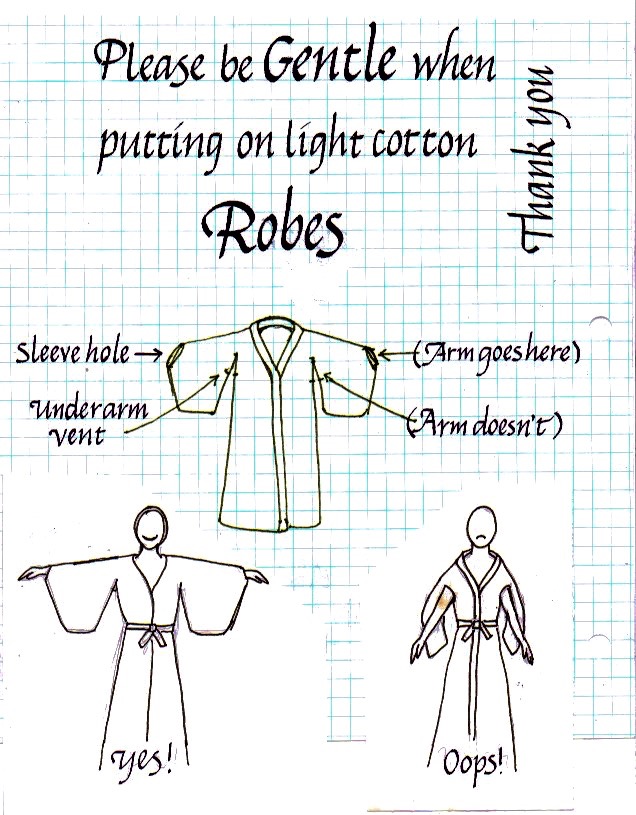 Please be Gentle when
putting on light cotton
Robes
Thank you
Sleeve hole
(Arm goes here)
Underarm
vent
(Arm doesn't)
Yes!
Oops!